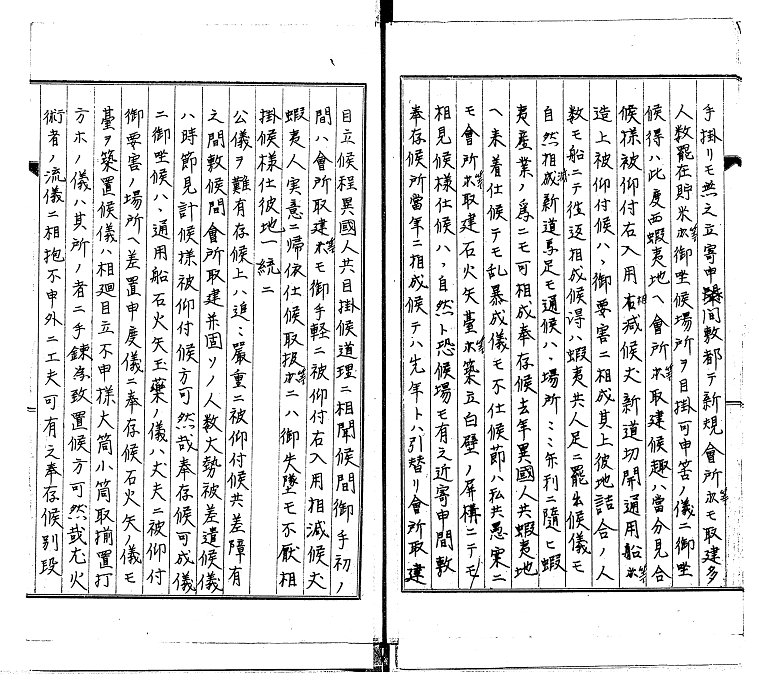 手掛リモ無之立寄申間敷都テ新規會所ホモ取建多
人数罷在貯米ホ御坐候場所ヲ目掛可申筈ノ儀ニ御坐
候得ハ此度西蝦夷地ヘ會所ホ取建候趣ハ當分見合
候様被仰付右入用相減候丈新道切開通用船ホ
造上被仰付候ハヽ御要害ニ相成其上彼地詰合ノ人
数モ船ニテ往返相成候得ハ蝦夷共人足ニ罷出候儀モ
自然相減新道馬足モ通候ハヽ場所ミミ弁利ニ随ヒ蝦
夷産業ノ為ニモ可相成奉存候去年異國人共蝦夷地
ヘ来着仕候テモ乱暴成儀モ不仕候節ハ私共愚案ニ
モ會所ホ取建石火矢臺ホ築立白壁ノ屏構ニテモ
相見候様仕候ハヽ自然ト恐候場モ有之近寄申間敷
奉存候所當年ニ相成候テハ先年トハ引替リ會所取建
目立候程異國人共目掛候道理ニ相聞候間御手初ノ
間ハ會所取建ホモ御手軽ニ被仰付右入用相減候丈
蝦夷人実意ニ帰依仕候取扱ホニハ御失墜モ不厭相
掛候様仕彼地一統ニ
公儀ヲ難有存候上ハ追ミ嚴重ニ被仰付候共差障有
之間敷候間會所取建并固リノ人数大勢被差遣候儀
ハ時節見計候様被仰付候方可然哉奉存候可成儀
ニ御坐候ハヽ通用船石火矢玉薬ノ儀ハ丈夫ニ被仰付
御要害ノ場所ヘ差置申度儀ニ奉存候石火矢ノ儀モ
臺ヲ築置候儀ハ相廻目立不申様大筒小筒取揃置打
方ホノ儀ハ其所ノ者ニ手錬為致置候方可然哉尤火
術者ノ流儀ニ相抱不申外ニ工夫可有之奉存候別段